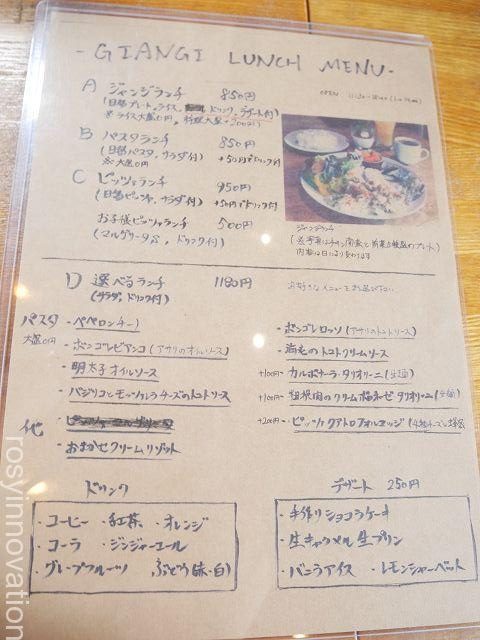 - GIANGI LUNCH MENU -
A ジャンジランチ 850円
(日替プレート、ライス、ドリンク、デザート付)
※ライス大盛0円、
OPEN
B パスタランチ 850円
(日替パスタ、サラダ付) +50円でドリンク付
※大盛0円
C ピッツァランチ 950円
(日替ピッツァ、サラダ付) +50円でドリンク付
お子様ピッツァランチ 500円
(マルゲリータS、ドリンク付)
ジャンジランチ
(※写真はチキン南蛮と前菜6種盛のプレート)
内容は日により変わります
D 選べるランチ 1180円
(サラダ、ドリンク付)
お好きなメニューをお選び下さい
パスタ
大盛0円
・ペペロンチーノ
・ボンゴレビアンコ(アサリのオイルソース)
・明太子オイルソース
・バジリコとモッツァレラチーズのトマトソース
他
・おまかせクリームリゾット
・ボンゴレロッソ(アサリのトマトソース)
・海老のトマトクリームソース
+100円・カルボナーラ タリオリーニ(生麺)
+100円・粗挽肉のクリームボロネーゼ タリオリーニ(生麺)
+200円・ピッツァクアトロフォルマッジ(4種チーズと蜂蜜)
ドリンク
・コーヒー ・紅茶 ・オレンジ
・コーラ ・ジンジャーエール
・グレープフルーツ ぶどう(赤・白)
デザート 250円
・手作りショコラケーキ
・生キャラメル生プリン
・バニラアイス ・レモンシャーベット
rosyinnovation